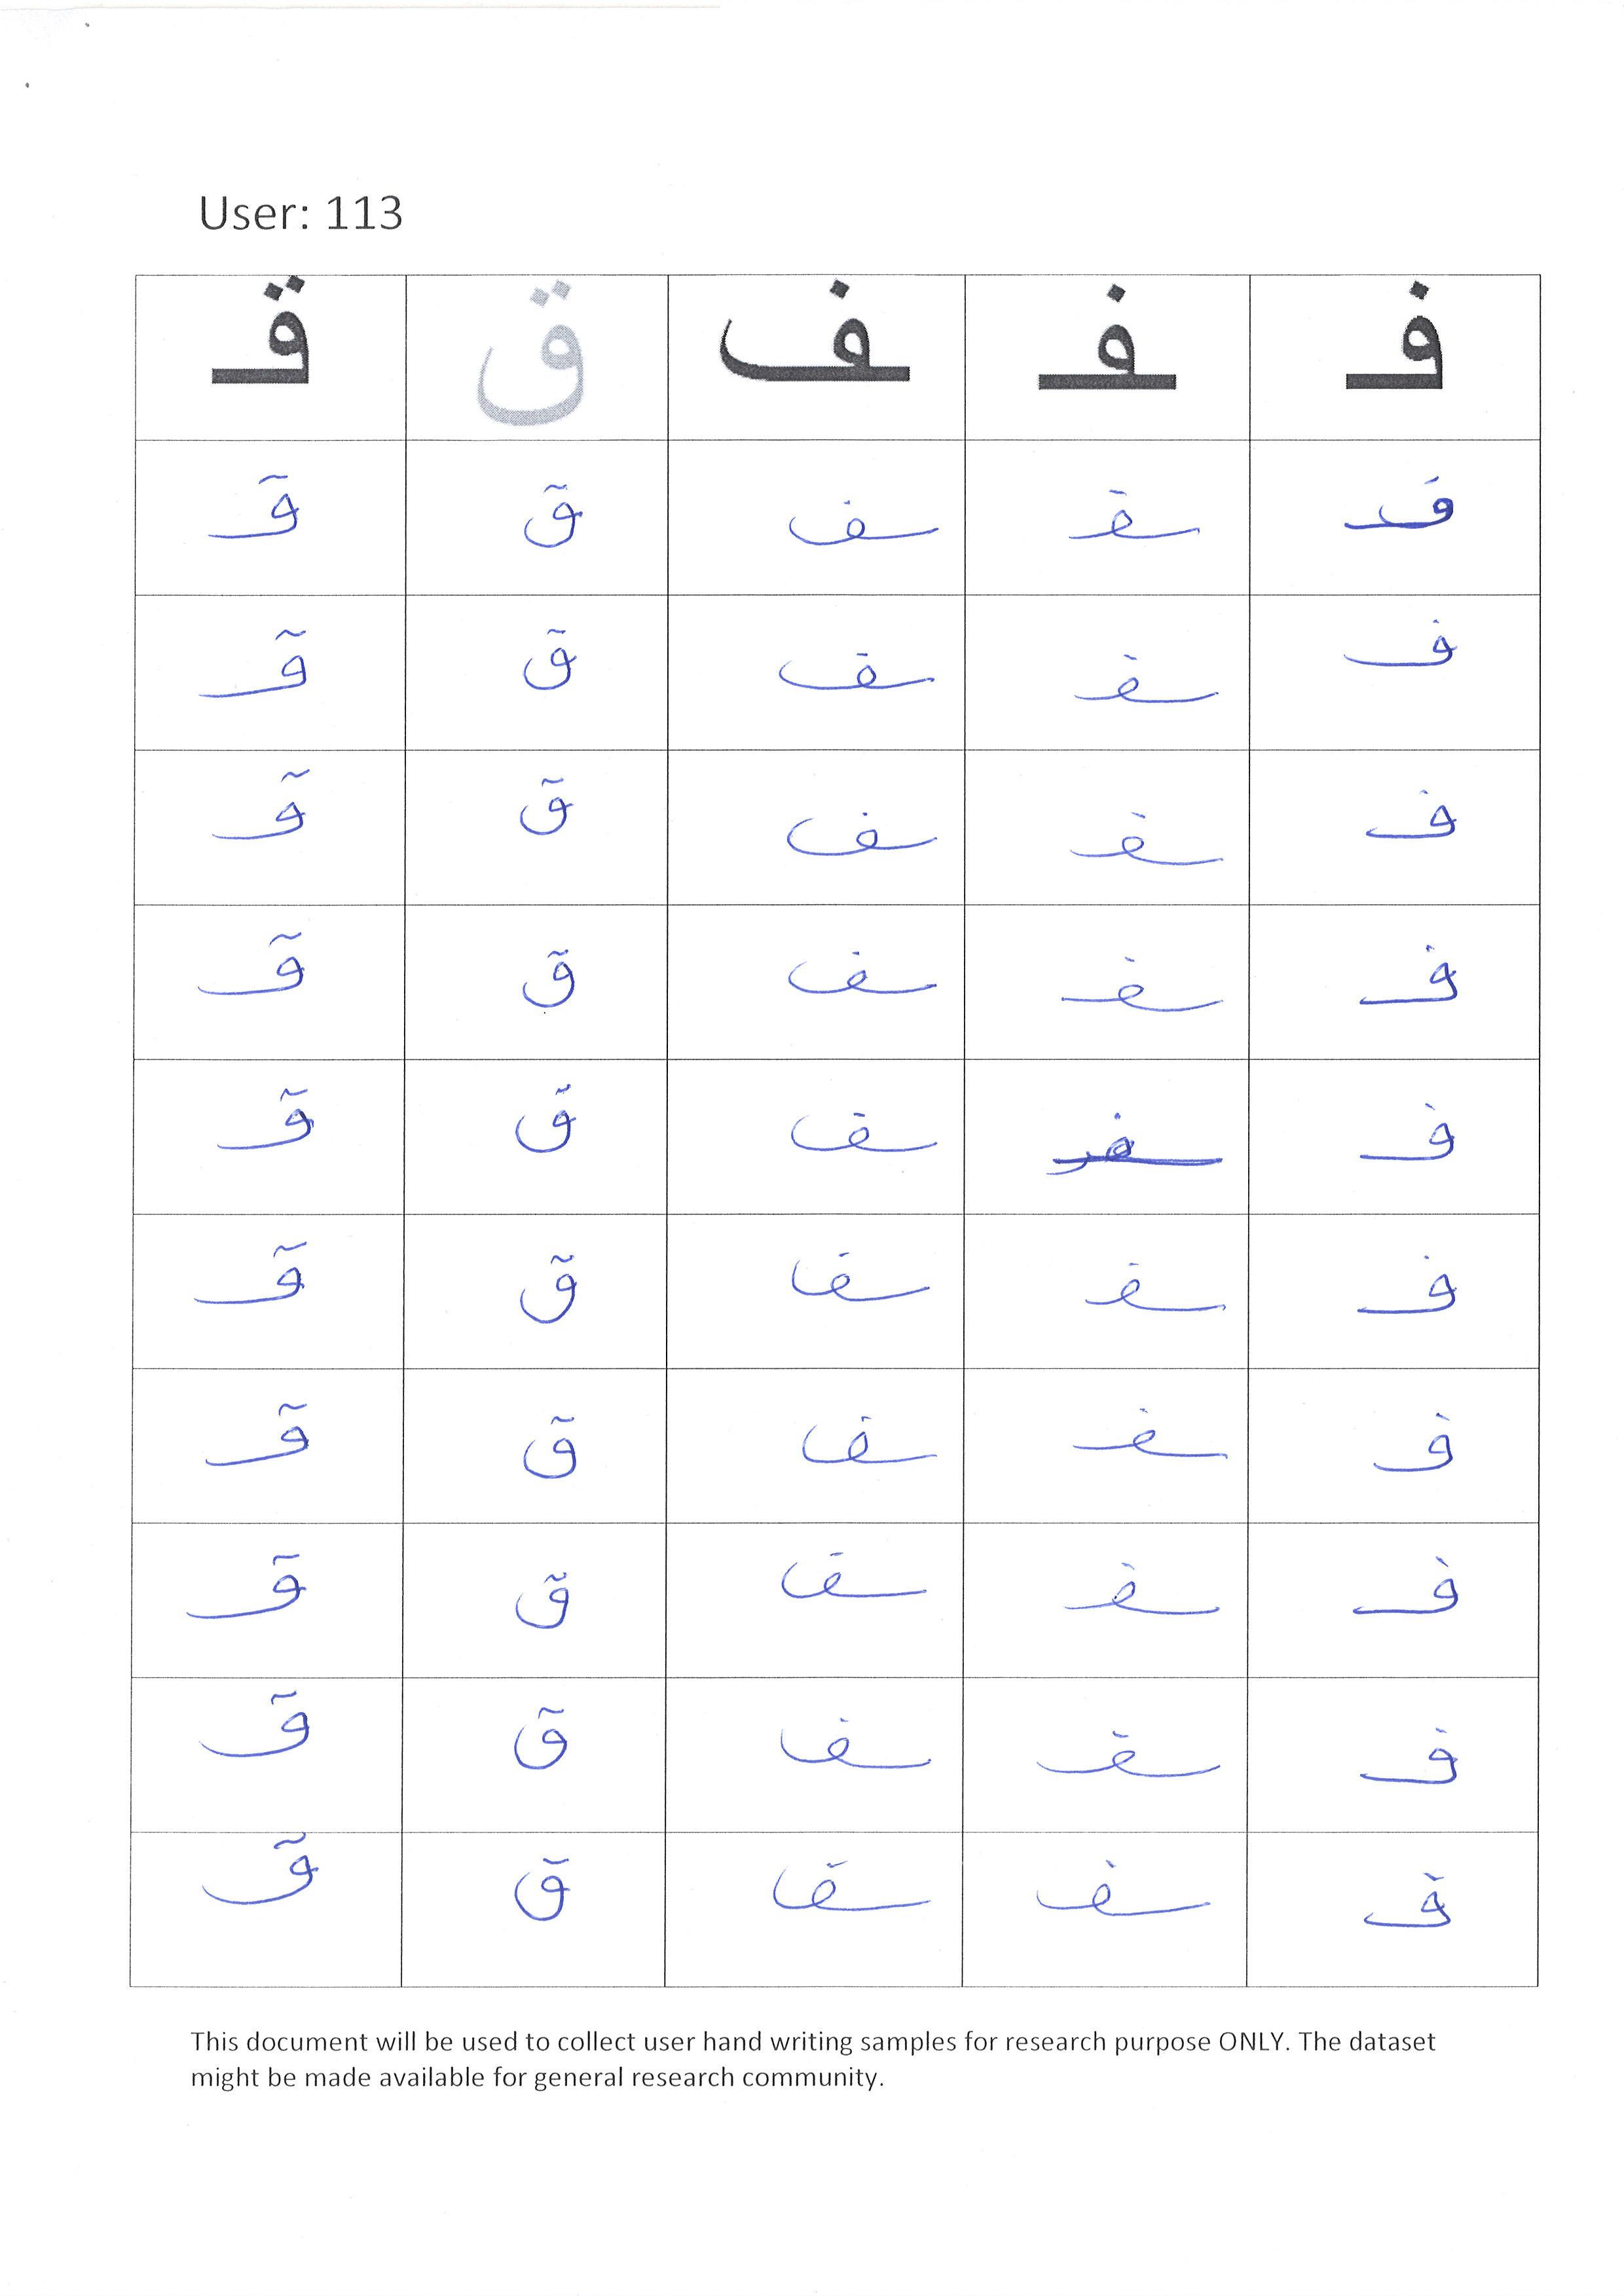 User: 113
فـ ـفـ ـف ق قـ
فـ ـفـ ـف ق قـ
فـ ـفـ ـف ق قـ
فـ ـفـ ـف ق قـ
فـ ـفـ ـف ق قـ
فـ ـفـ ـف ق قـ
فـ ـفـ ـف ق قـ
فـ ـفـ ـف ق قـ
فـ ـفـ ـف ق قـ
فـ ـفـ ـف ق قـ
فـ ـفـ ـف ق قـ
This document will be used to collect user hand writing samples for research purpose ONLY. The dataset
might be made available for general research community.